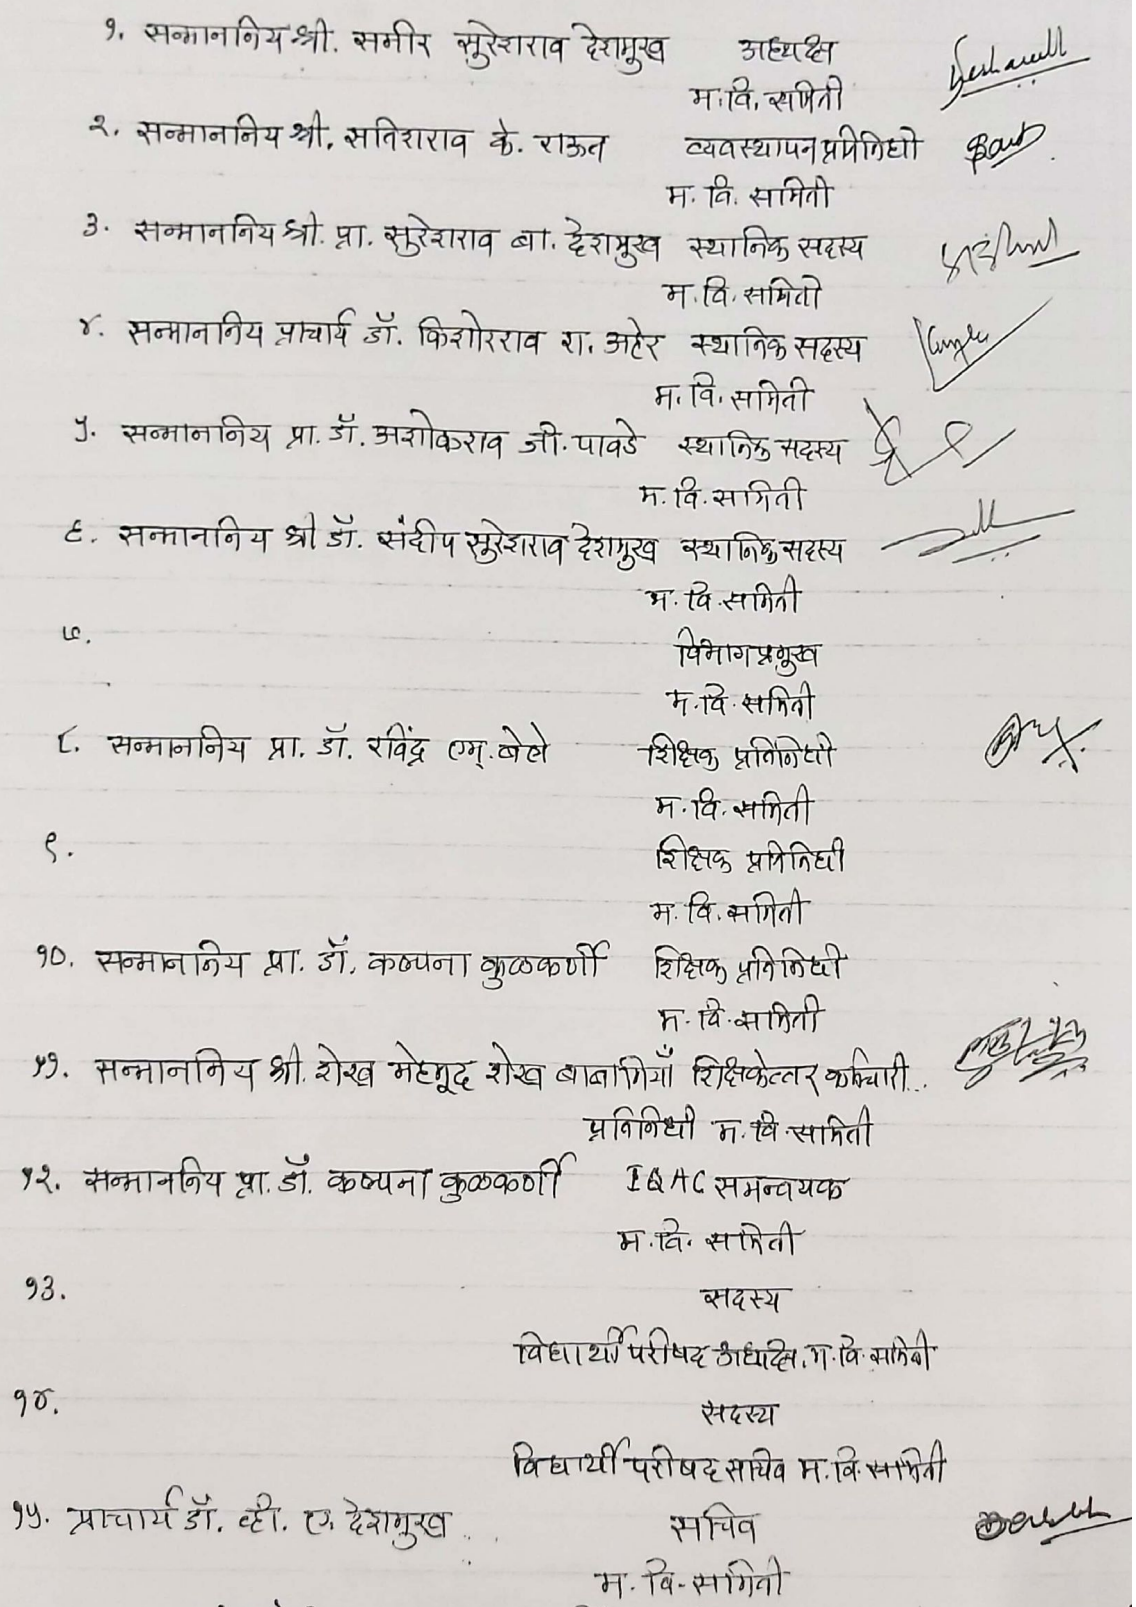 १. सन्माननिय श्री. समीर सुरेशराव देशमुख अध्यक्ष
म. वि. समिती
२. सन्माननिय श्री. सतिशराव के. राऊत व्यवस्थापन प्रतिनिधी
म. वि. समिती
३. सन्माननिय श्री. प्रा. सुरेशराव बा. देशमुख स्थानिक सदस्य
म. वि. समिती
४. सन्माननिय प्राचार्य डॉ. किशोरराव रा. अहेर स्थानिक सदस्य
म. वि. समिती
५. सन्माननिय प्रा. डॉ. अशोकराव जी. पावडे स्थानिक सदस्य
म. वि. समिती
६. सन्माननिय श्री डॉ. संदीप सुरेशराव देशमुख स्थानिक सदस्य
म. वि. समिती
७. विभाग प्रमुख
म. वि. समिती
८. सन्माननिय प्रा. डॉ. रविंद्र एम्. शिक्षक प्रतिनिधी
म. वि. समिती
९. शिक्षक प्रतिनिधी
म. वि. समिती
१०. सन्माननिय प्रा. डॉ. कल्पना कुळकर्णी शिक्षक प्रतिनिधी
म. वि. समिती
११. सन्माननिय श्री. शेख मेहमूद शेख बाबामियाँ शिक्षिकेत्तर कर्मचारी..
प्रतिनिधी म. वि. समिती
१२. सन्माननिय प्रा. डॉ. कल्पना कुळकर्णी IQAC समन्वयक
म. वि. समिती
१३. सदस्य
विद्यार्थी परीषद अध्यक्ष. म. वि. समिती
१४. सदस्य
विद्यार्थी परीषद सचिव म. वि. समिती
१५. प्राचार्य डॉ. व्ही. ए. देशमुख सचिव
म. वि. समिती